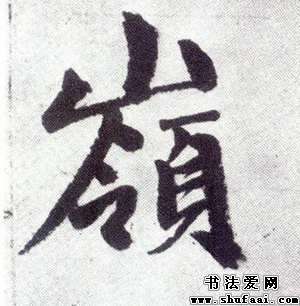 嶺
书法爱网
www.shufaai.com